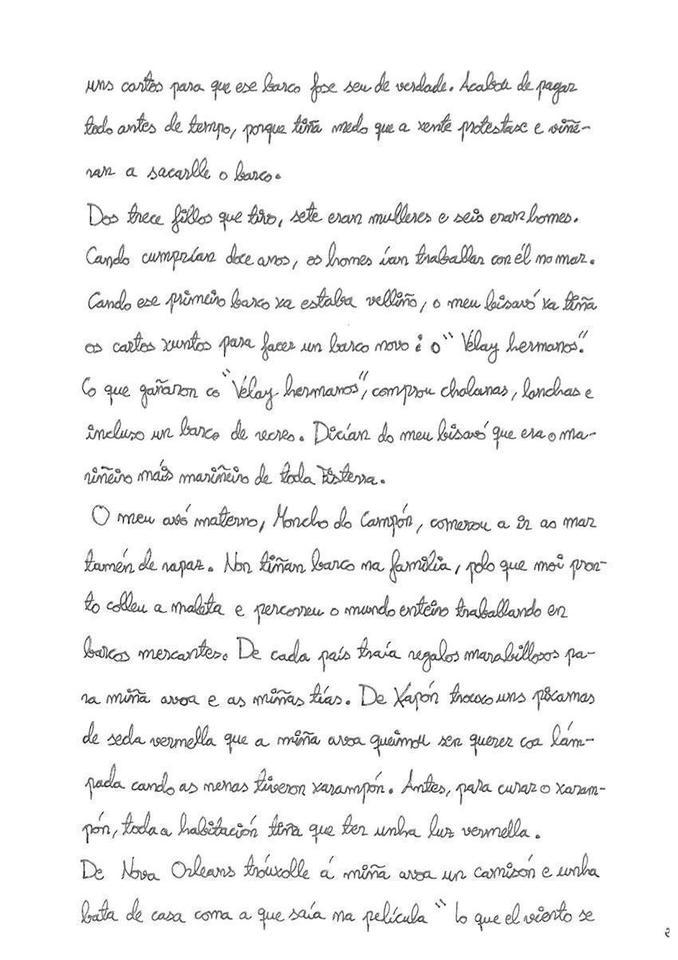 uns cartos para que ese barco fose seu de verdade. Acabou de pagar
todo antes de tempo, porque tiña medo que a xente protestase e viñe-
ran a sacarlle o barco.
Dos trece fillos que tivo, sete eran mulleres e seis eran homes.
Cando cumprían doce anos, os homes ían traballar con él no mar.
Cando ese primeiro barco xa estaba velliño, o meu bisavó xa tiña
os cartos xuntos para facer un barco novo: o "Vélay hermanos".
Co que gañaron co "Vélay hermanos", comprou chalanas, lanchas e
incluso un barco de recreo. Dicían do meu bisavó que era o ma-
riñeiro máis mariñeiro de toda Fisterra.
O meu avó materno, Moncho do Campón, comezou a ir ao mar
tamén de rapaz. Non tiñan barco na familia, polo que moi pron-
to colleu a maleta e percorreu o mundo enteiro traballando en
barcos mercantes. De cada país traía regalos marabillosos pa-
ra miña avoa e as miñas tías. De Xapón trouxo uns pixamas
de seda vermella que a miña avoa queimou sen querer coa lám-
pada cando as nenas tiveron xarampón. Antes, para curar o xaram-
pón, toda a habitación tiña que ter unha luz vermella.
De Nova Orleans tróuxolle á miña avoa un camisón e unha
bata de casa coma a que saía na película "lo que el viento se
2